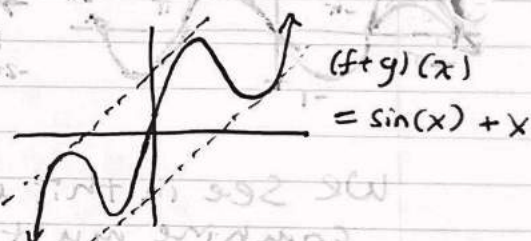 (f+g)(x)
= sin(x) + x